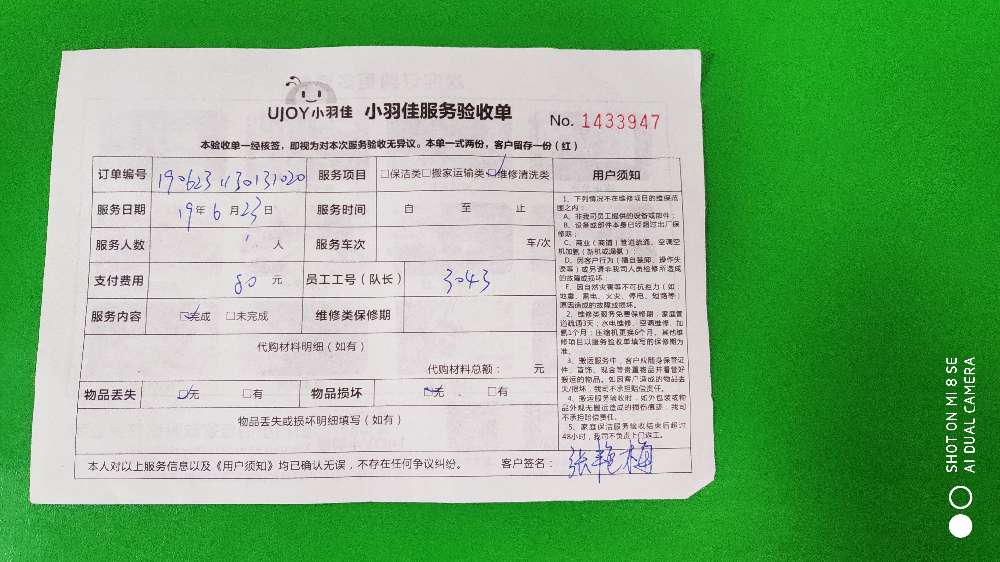 UJOY小羽佳 小羽佳服务验收单 No. 1433947
本验收单一经核签，即视为对本次服务验收无异议。本单一式两份，客户留存一份（红）
订单编号 190623 服务项目 □保洁类□搬家运输类□维修清洗类
服务日期 19年6月23日 服务时间 自 至 止
服务人数 1 人 服务车次 车/次
支付费用 80 元 员工工号（队长） 3043
服务内容 □完成 □未完成 维修类保修期
代购材料明细（如有）
代购材料总额： 元
物品丢失 □无 □有 物品损坏 □无 □有
物品丢失或损坏明细填写（如有）
本人对以上服务信息以及《用户须知》均已确认无误，不存在任何争议纠纷。 客户签名： 张艳梅
用户须知
1、下列情况不在维修项目的维保范
围之内：
A、非我司员工提供的设备或部件；
B、设备或部件本身已经超过出厂保
修期；
C、商业（商铺）管道疏通、空调空
机加氟（新机或漏氟）；
D、因客户行为（擅自装卸、操作失
误等）或另请非我司人员检修所造成
的故障或损坏；
E、因自然灾害等不可抗拒力（如：
地震、雷电、火灾、停电、短路等）
原因造成的故障或损坏。
2、维修类服务免费保修期：家庭管
道疏通3天；水电维修、空调维修、加
氟1个月；压缩机更换6个月。其他维
修项目以服务验收单填写的保修期为
准。
3、搬运服务中，客户应随身保管证
件、首饰、现金等贵重物品并看管好
搬运的物品。如因客户造成的物品丢
失/损坏，我司不承担赔偿责任。
4、搬运服务验收时，如外包装或物
品外观无搬运造成的损伤痕迹，我司
不承担赔偿责任。
5、家庭保洁服务验收结束后超过
48小时，我司不负责上门返工。
SHOT ON MI 8 SE
AI DUAL CAMERA